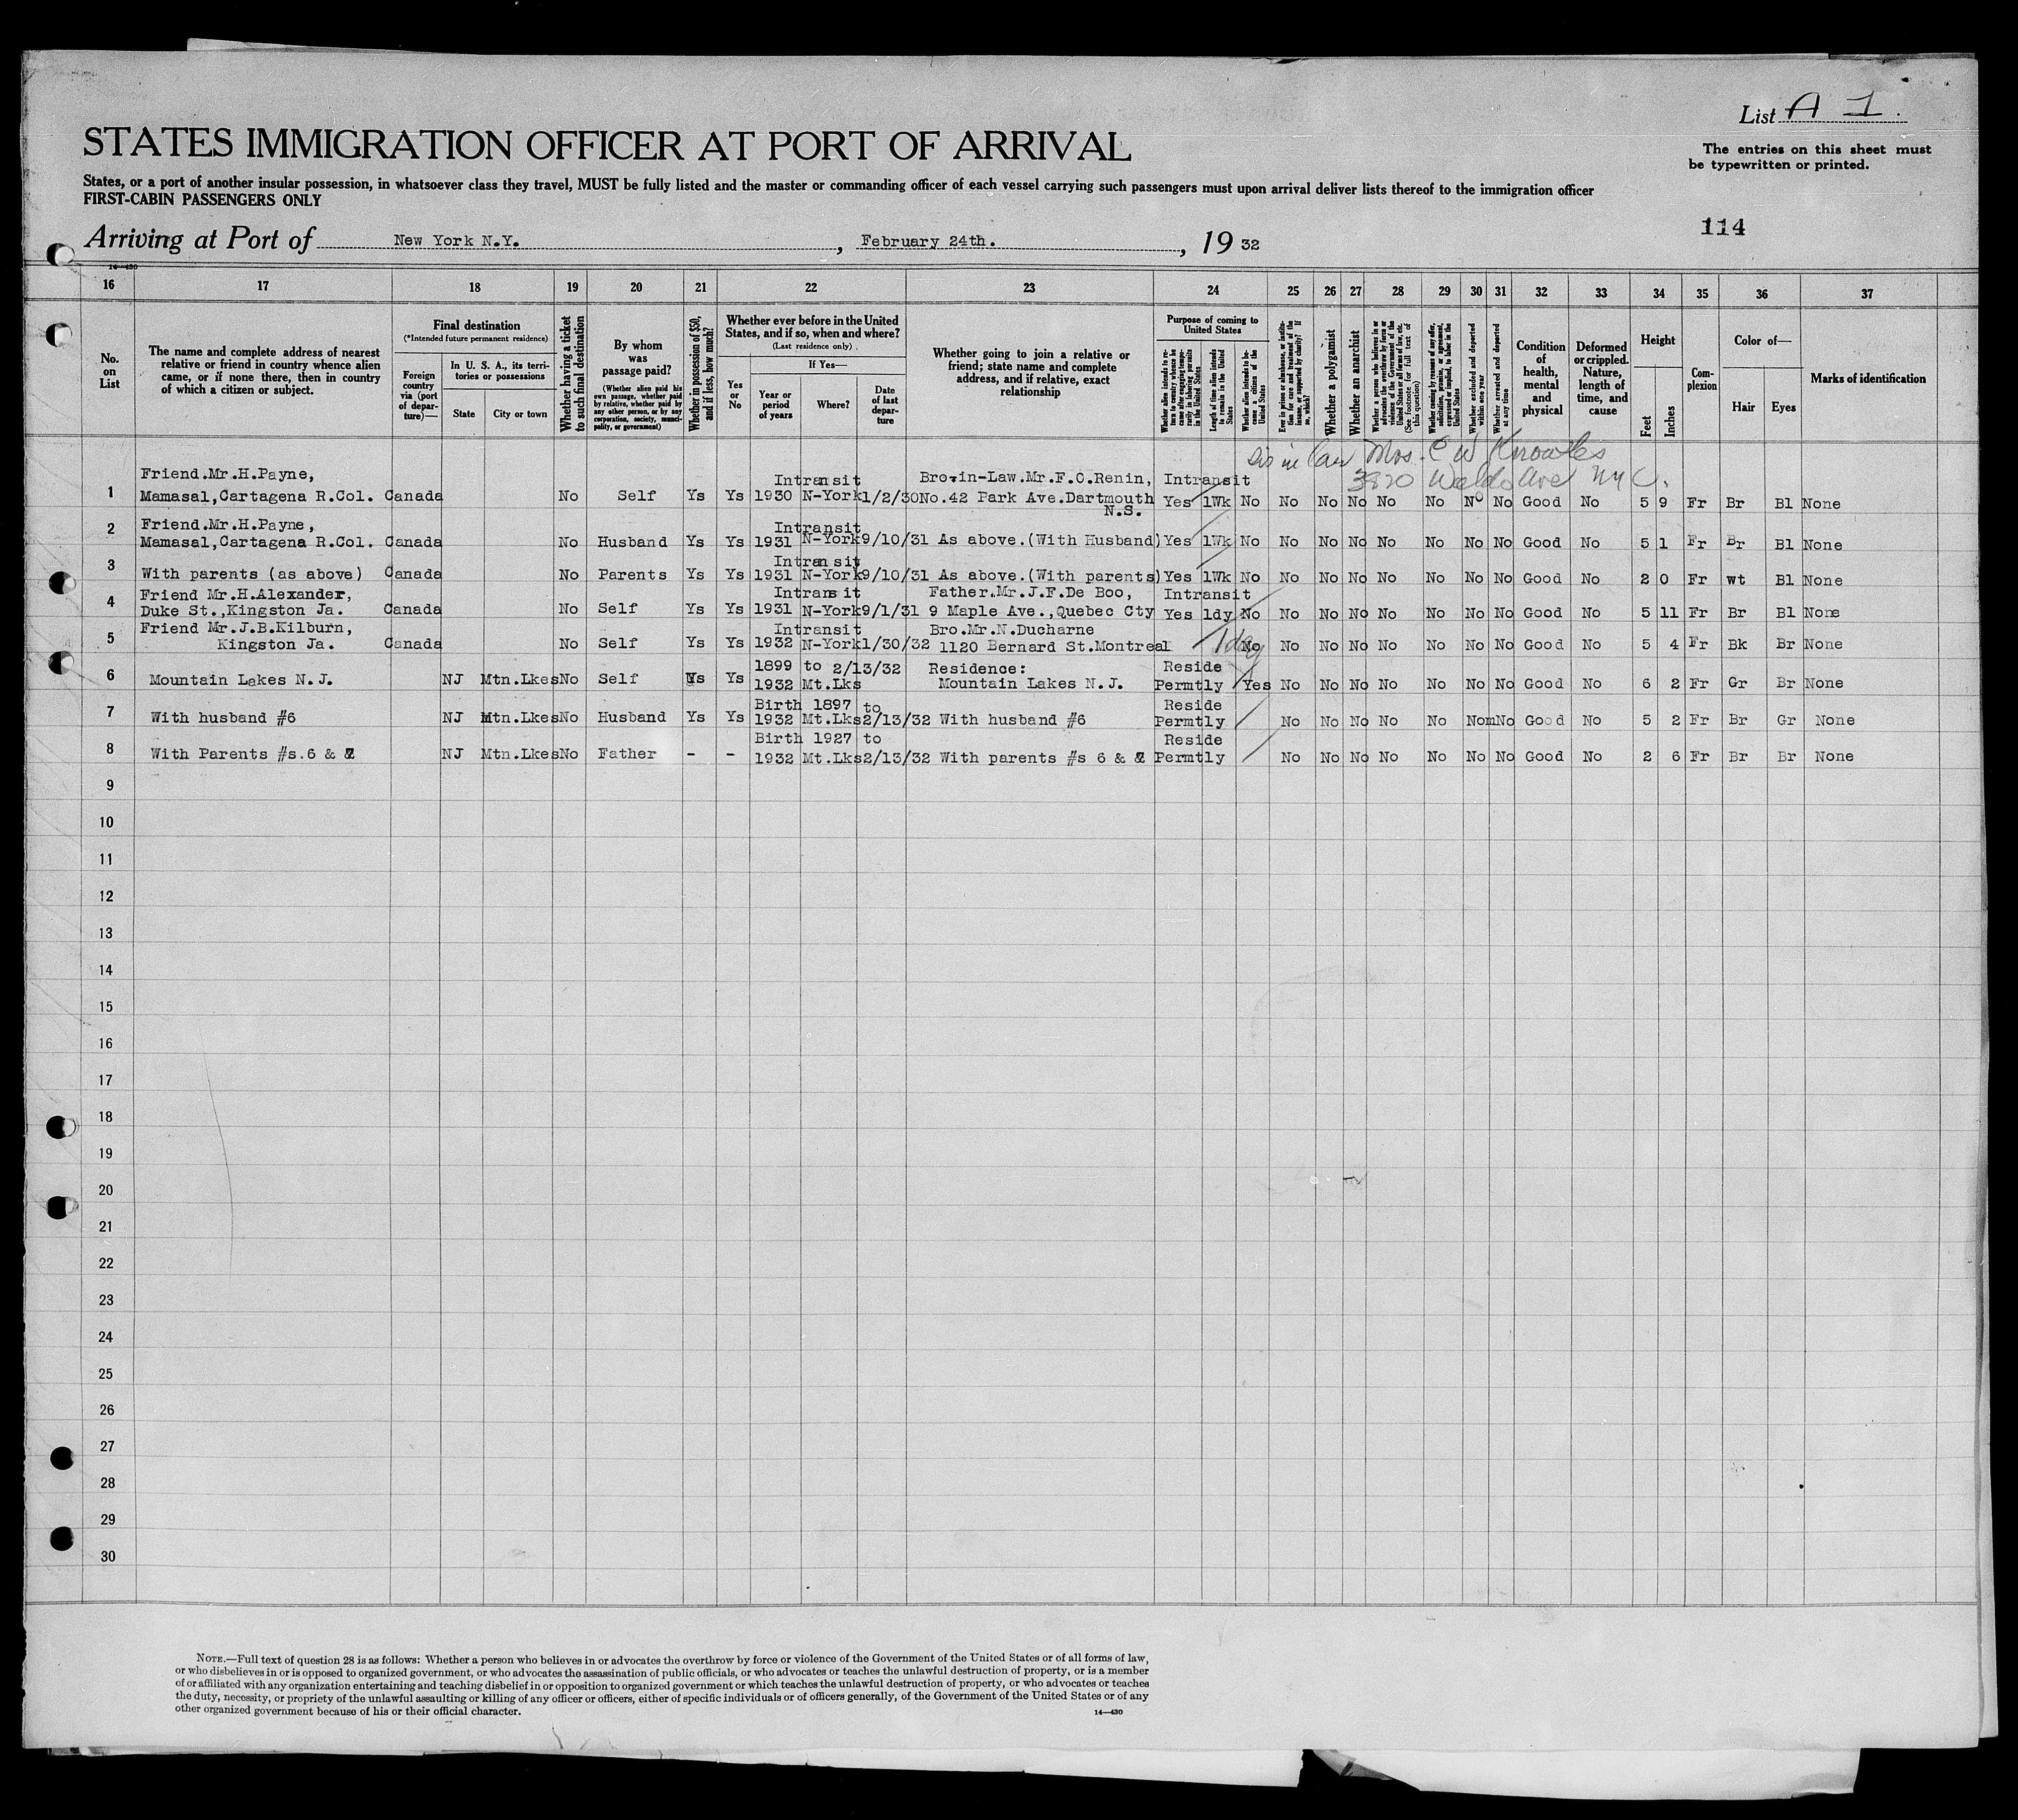 List A 1.
STATES IMMIGRATION OFFICER AT PORT OF ARRIVAL
The entries on this sheet must
be typewritten or printed.
States, or a port of another insular possession, in whatsoever class they travel, MUST be fully listed and the master or commanding officer of each vessel carrying such passengers must upon arrival deliver lists thereof to the immigration officer
FIRST-CABIN PASSENGERS ONLY
114
Arriving at Port of New York N.Y. , February 24th. , 19 32
14—430
16 17 18 19 20 21 22 23 24 25 26 27 28 29 30 31 32 33 34 35 36 37
No. on List
The name and complete address of nearest relative or friend in country whence alien came, or if none there, then in country of which a citizen or subject.
Final destination
(*Intended future permanent residence)
Foreign country via (port of departure)—
In U. S. A., its territories or possessions
State City or town
Whether having a ticket to such final destination
By whom was passage paid?
(Whether alien paid his own passage, whether paid by relative, whether paid by any other person, or by any corporation, society, municipality, or government)
Whether in possession of $50, and if less, how much?
Whether ever before in the United States, and if so, when and where?
(Last residence only)
Yes or No
If Yes—
Year or period of years
Where?
Date of last departure
Whether going to join a relative or friend; state name and complete address, and if relative, exact relationship
Purpose of coming to United States
Length of time alien intends to remain in the United States
Whether alien intends to become a citizen of the United States
Whether a polygamist
Whether an anarchist
Whether excluded and deported within one year
Whether arrested and deported at any time
Condition of health, mental and physical
Deformed or crippled. Nature, length of time, and cause
Height
Feet Inches
Complexion
Color of—
Hair Eyes
Marks of identification
Sis in law Mrs. C W Knowles
3820 Waldo Ave NYC.
Friend.Mr.H.Payne, Intransit Bro-in-Law.Mr.F.O.Renin, Intransit
1 Mamasal,Cartagena R.Col. Canada No Self Ys Ys 1930 N-York 1/2/30 No.42 Park Ave.Dartmouth Yes 1Wk No No No No No No No No Good No 5 9 Fr Br Bl None
N.S.
Friend.Mr.H.Payne, Intransit
2 Mamasal,Cartagena R.Col. Canada No Husband Ys Ys 1931 N-York 9/10/31 As above.(With Husband) Yes 1Wk No No No No No No No No Good No 5 1 Fr Br Bl None
Intransit
3 With parents (as above) Canada No Parents Ys Ys 1931 N-York 9/10/31 As above.(With parents) Yes 1Wk No No No No No No No No Good No 2 0 Fr wt Bl None
Friend Mr.H.Alexander, Intransit Father.Mr.J.F.De Boo, Intransit
4 Duke St.,Kingston Ja. Canada No Self Ys Ys 1931 N-York 9/1/31 9 Maple Ave.,Quebec Cty Yes 1dy No No No No No No No No Good No 5 11 Fr Br Bl None
Friend Mr.J.B.Kilburn, Intransit Bro.Mr.N.Ducharne
5 Kingston Ja. Canada No Self Ys Ys 1932 N-York 1/30/32 1120 Bernard St.Montreal 1day No No No No No No No No Good No 5 4 Fr Bk Br None
1899 to 2/13/32 Residence: Reside
6 Mountain Lakes N.J. NJ Mtn.Lkes No Self Ys Ys 1932 Mt.Lks Mountain Lakes N.J. Permtly Yes No No No No No No No Good No 6 2 Fr Gr Br None
Birth 1897 to Reside
7 With husband #6 NJ Mtn.Lkes No Husband Ys Ys 1932 Mt.Lks 2/13/32 With husband #6 Permtly No No No No No No No Good No 5 2 Fr Br Gr None
Birth 1927 to Reside
8 With Parents #s.6 & 7 NJ Mtn.Lkes No Father - - 1932 Mt.Lks 2/13/32 With parents #s 6 & 7 Permtly No No No No No No No Good No 2 6 Fr Br Br None
9
10
11
12
13
14
15
16
17
18
19
20
21
22
23
24
25
26
27
28
29
30
NOTE.—Full text of question 28 is as follows: Whether a person who believes in or advocates the overthrow by force or violence of the Government of the United States or of all forms of law,
or who disbelieves in or is opposed to organized government, or who advocates the assassination of public officials, or who advocates or teaches the unlawful destruction of property, or is a member
of or affiliated with any organization entertaining and teaching disbelief in or opposition to organized government or which teaches the unlawful destruction of property, or who advocates or teaches
the duty, necessity, or propriety of the unlawful assaulting or killing of any officer or officers, either of specific individuals or of officers generally, of the Government of the United States or of any
other organized government because of his or their official character.
14—430